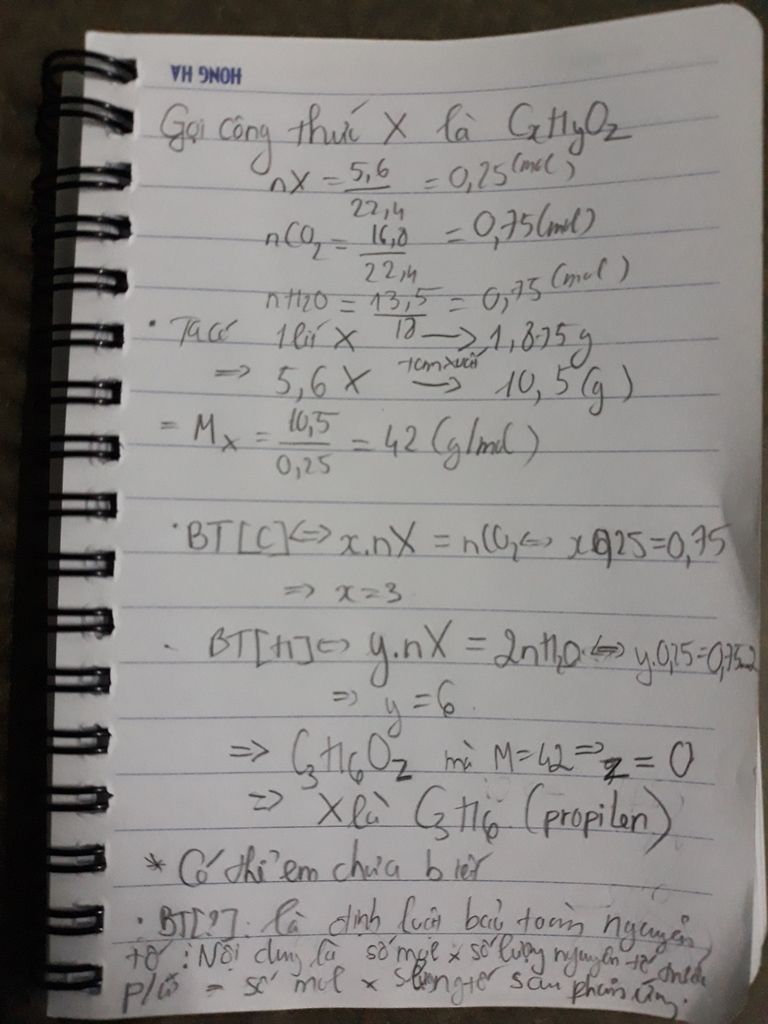 HONG HA
Gọi công thức X là CxHyOz
nX = 5,6/22,4 = 0,25 (mol)
nCO2 = 16,8/22,4 = 0,75 (mol)
nH2O = 13,5/18 = 0,75 (mol)
· Ta có 1 lít X → 1,875 g
⇒ 5,6 X → 10,5 (g)
= Mx = 10,5/0,25 = 42 (g/mol)
· BT[C] ⇔ x.nX = nCO2 ⇔ x.0,25 = 0,75
⇒ x = 3
· BT[H] ⇔ y.nX = 2nH2O ⇔ y.0,25 = 0,75.2
⇒ y = 6
⇒ C3H6Oz mà M = 42 ⇒ z = 0
⇒ X là C3H6 (propilen)
* Có thể em chưa biết
· BT[?]: là định luật bảo toàn nguyên
tố: Nội dung là số mol x số lượng nguyên tố trước
p/ứ = số mol x sau phản ứng.